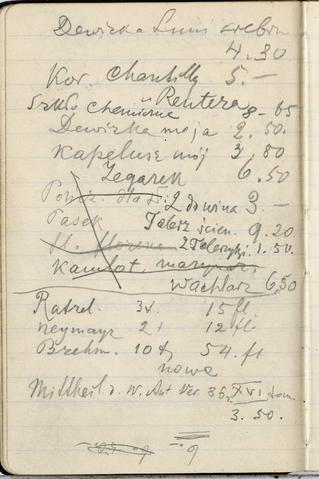 Dewizka Luni srebrn
4.30
Kor. Chantilly 5.—
Szkło chemiczne u Rentera 8-65
Dewizka moja 2.50.
Kapelusz mój 3,80
Zegarek 6.50
dla 2 do wina 3.—
Pasek Talerz ścien. 9.20
2 Talerzyki 1.50.
Kamlot, marynar.
Wachlarz 6,50
Ratzel. 3 t. 15 fl.
Neymayr 2 t 12 fl.
Brehm. 10 t. 54. fl
nowa
Mittheil. d. W. Ant Ver. 86 XVI tom.
3.50.